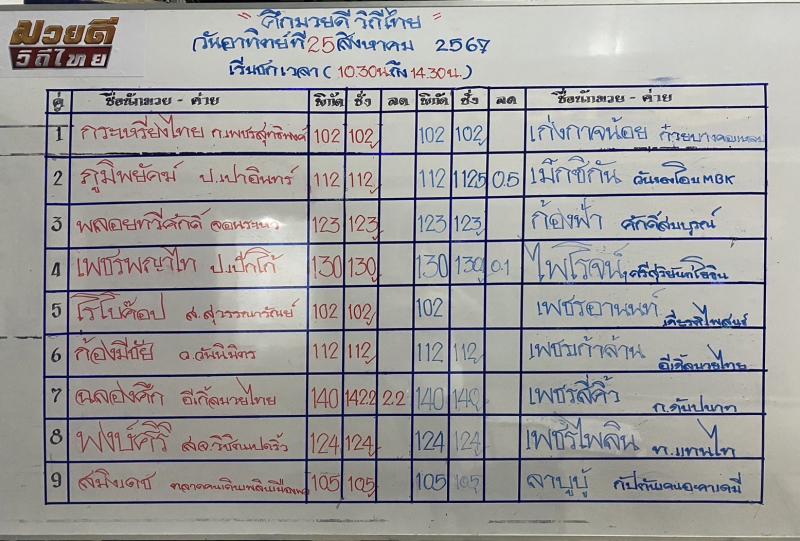 มวยดี
วิถีไทย
" ศึกมวยดี วิถีไทย "
วันอาทิตย์ที่ 25 สิงหาคม 2567
เริ่มชกเวลา (10.30น ถึง 14.30 น.)
คู่ ชื่อนักมวย - ค่าย พิกัด ชั่ง ลด พิกัด ชั่ง ลด ชื่อนักมวย - ค่าย
1 กระเหรี่ยงไทย ก.เพชรสุทธิพงศ์ 102 102 102 102 เก่งกาจน้อย
2 ภูมิพยัคฆ์ ป.เปาอินทร์ 112 112 112 112.5 0.5 เม็กซิกัน MBK
3 พลอยทวีศักดิ์ 123 123 123 123 ก้องฟ้า ศักดิ์สมบูรณ์
4 เพชรพญาไท ป.เป็กโก้ 130 130 130 130 0.1 ไพโรจน์
5 โรโบค๊อป ส.สุวรรณารัณย์ 102 102 102 เพชรอานนท์ เกียรติไพสนธ์
6 ก้องมีชัย ว.วันนิมิตร 112 112 112 112 เพชรเก้าล้าน อีเกิ้ลมวยไทย
7 ฉลองศึก อีเกิ้ลมวยไทย 140 142.2 2.2 140 140 เพชรสี่คิ้ว
8 พงษ์ศิริ 124 124 124 124 เพชรไพลิน ท.แทนไท
9 สมิงเดช 105 105 105 105 ลาบูบู้